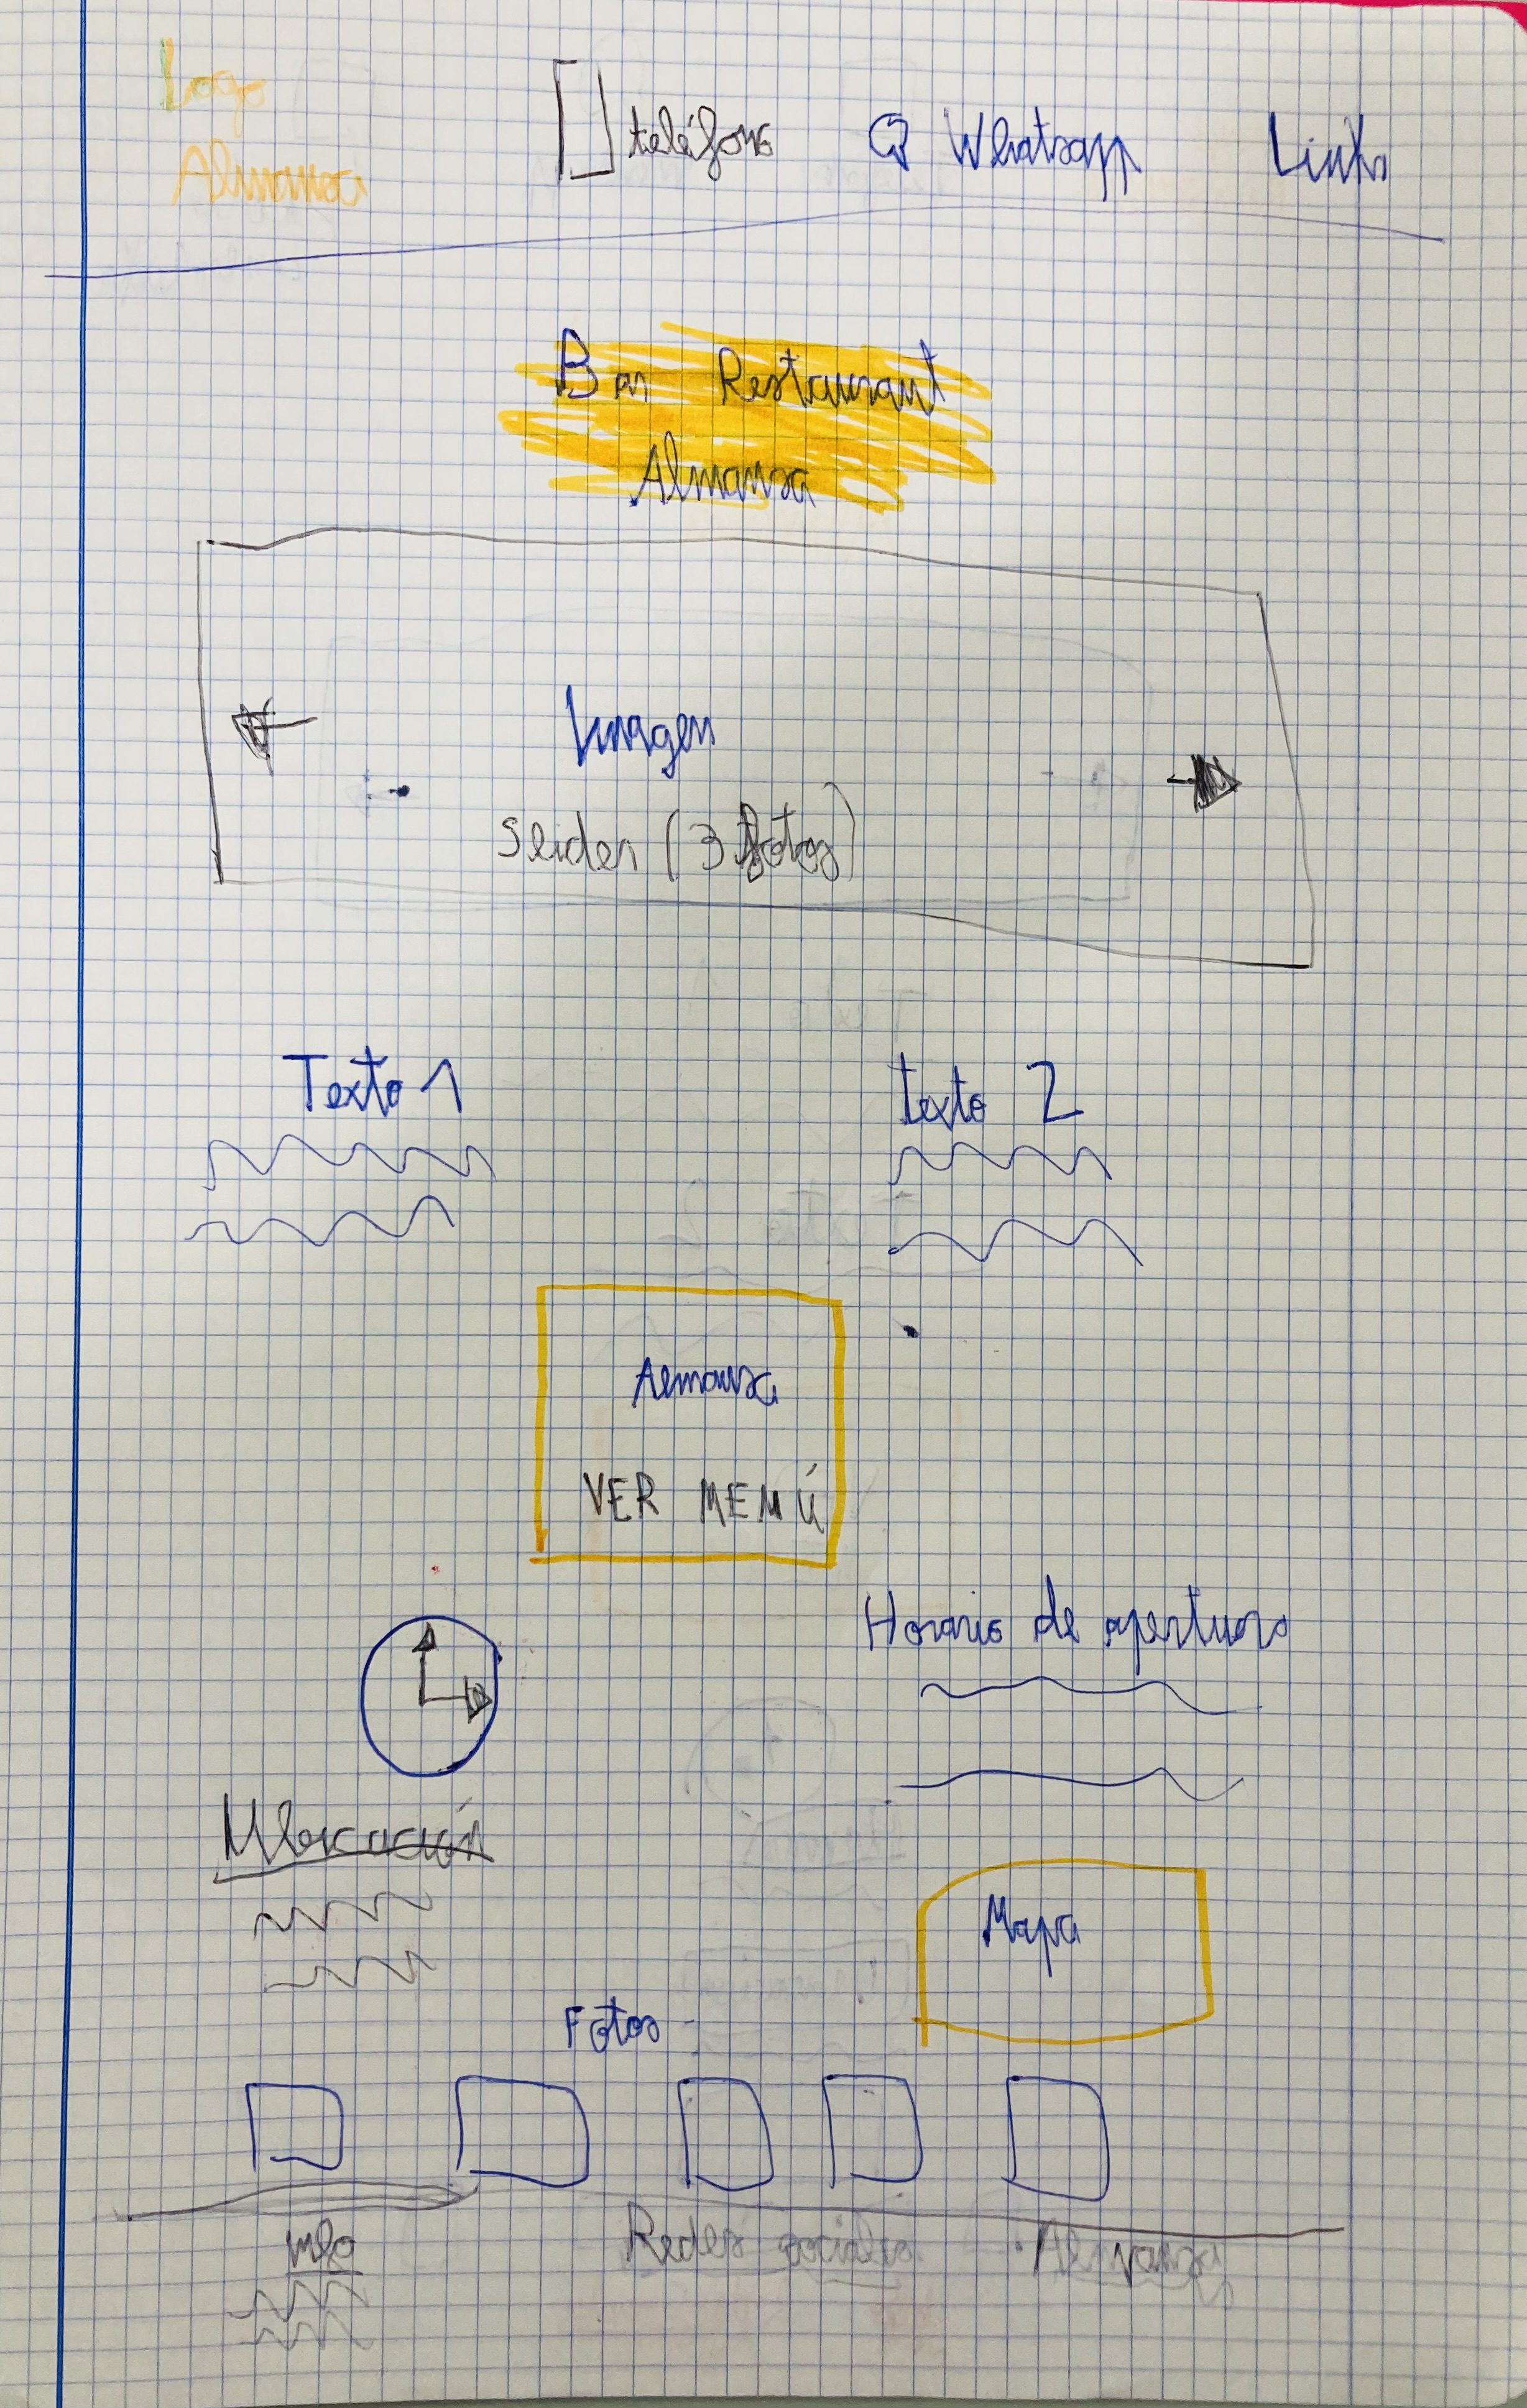 Logo
Almansa
teléfono Whatsapp Links
Bar Restaurant
Almansa
Imagen
Slider (3 fotos)
Texto 1 texto 2
Almansa
VER MENÚ
Horario de apertura
Ubicación
Mapa
Fotos
Redes sociales Almansa